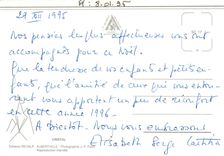 R : 8.01.95
29 XII 1995
Nos pensées les plus affectueuses vous ont
accompagnés pour ce Noël.
Que la tendresse de vos enfants et petits-en-
fants, que l'amitié de ceux qui vous entou-
rent vous apportent un peu de réconfort
en cette année 1996.
A bientôt. Nous vous embrassons
Elisabeth Serge